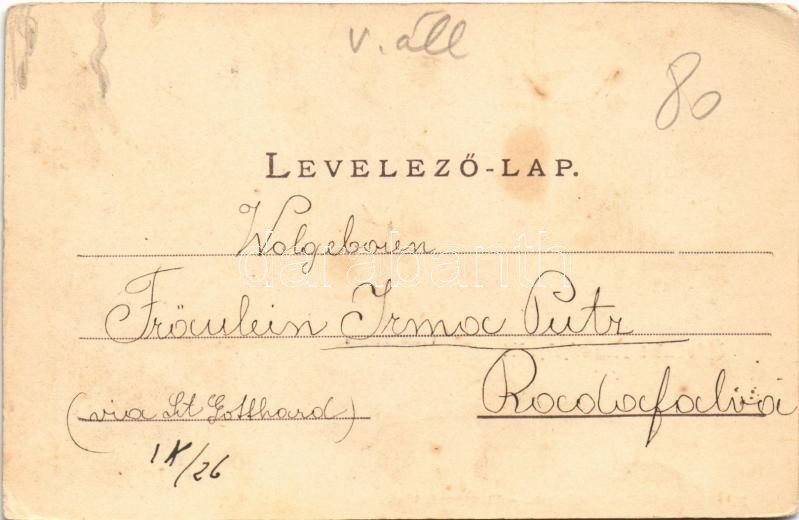 v. áll
80
LEVELEZŐ-LAP.
Wolgeboren
darabanth
Fräulein Irma Putr
Radafalva
(via St Gotthard)
IX/26